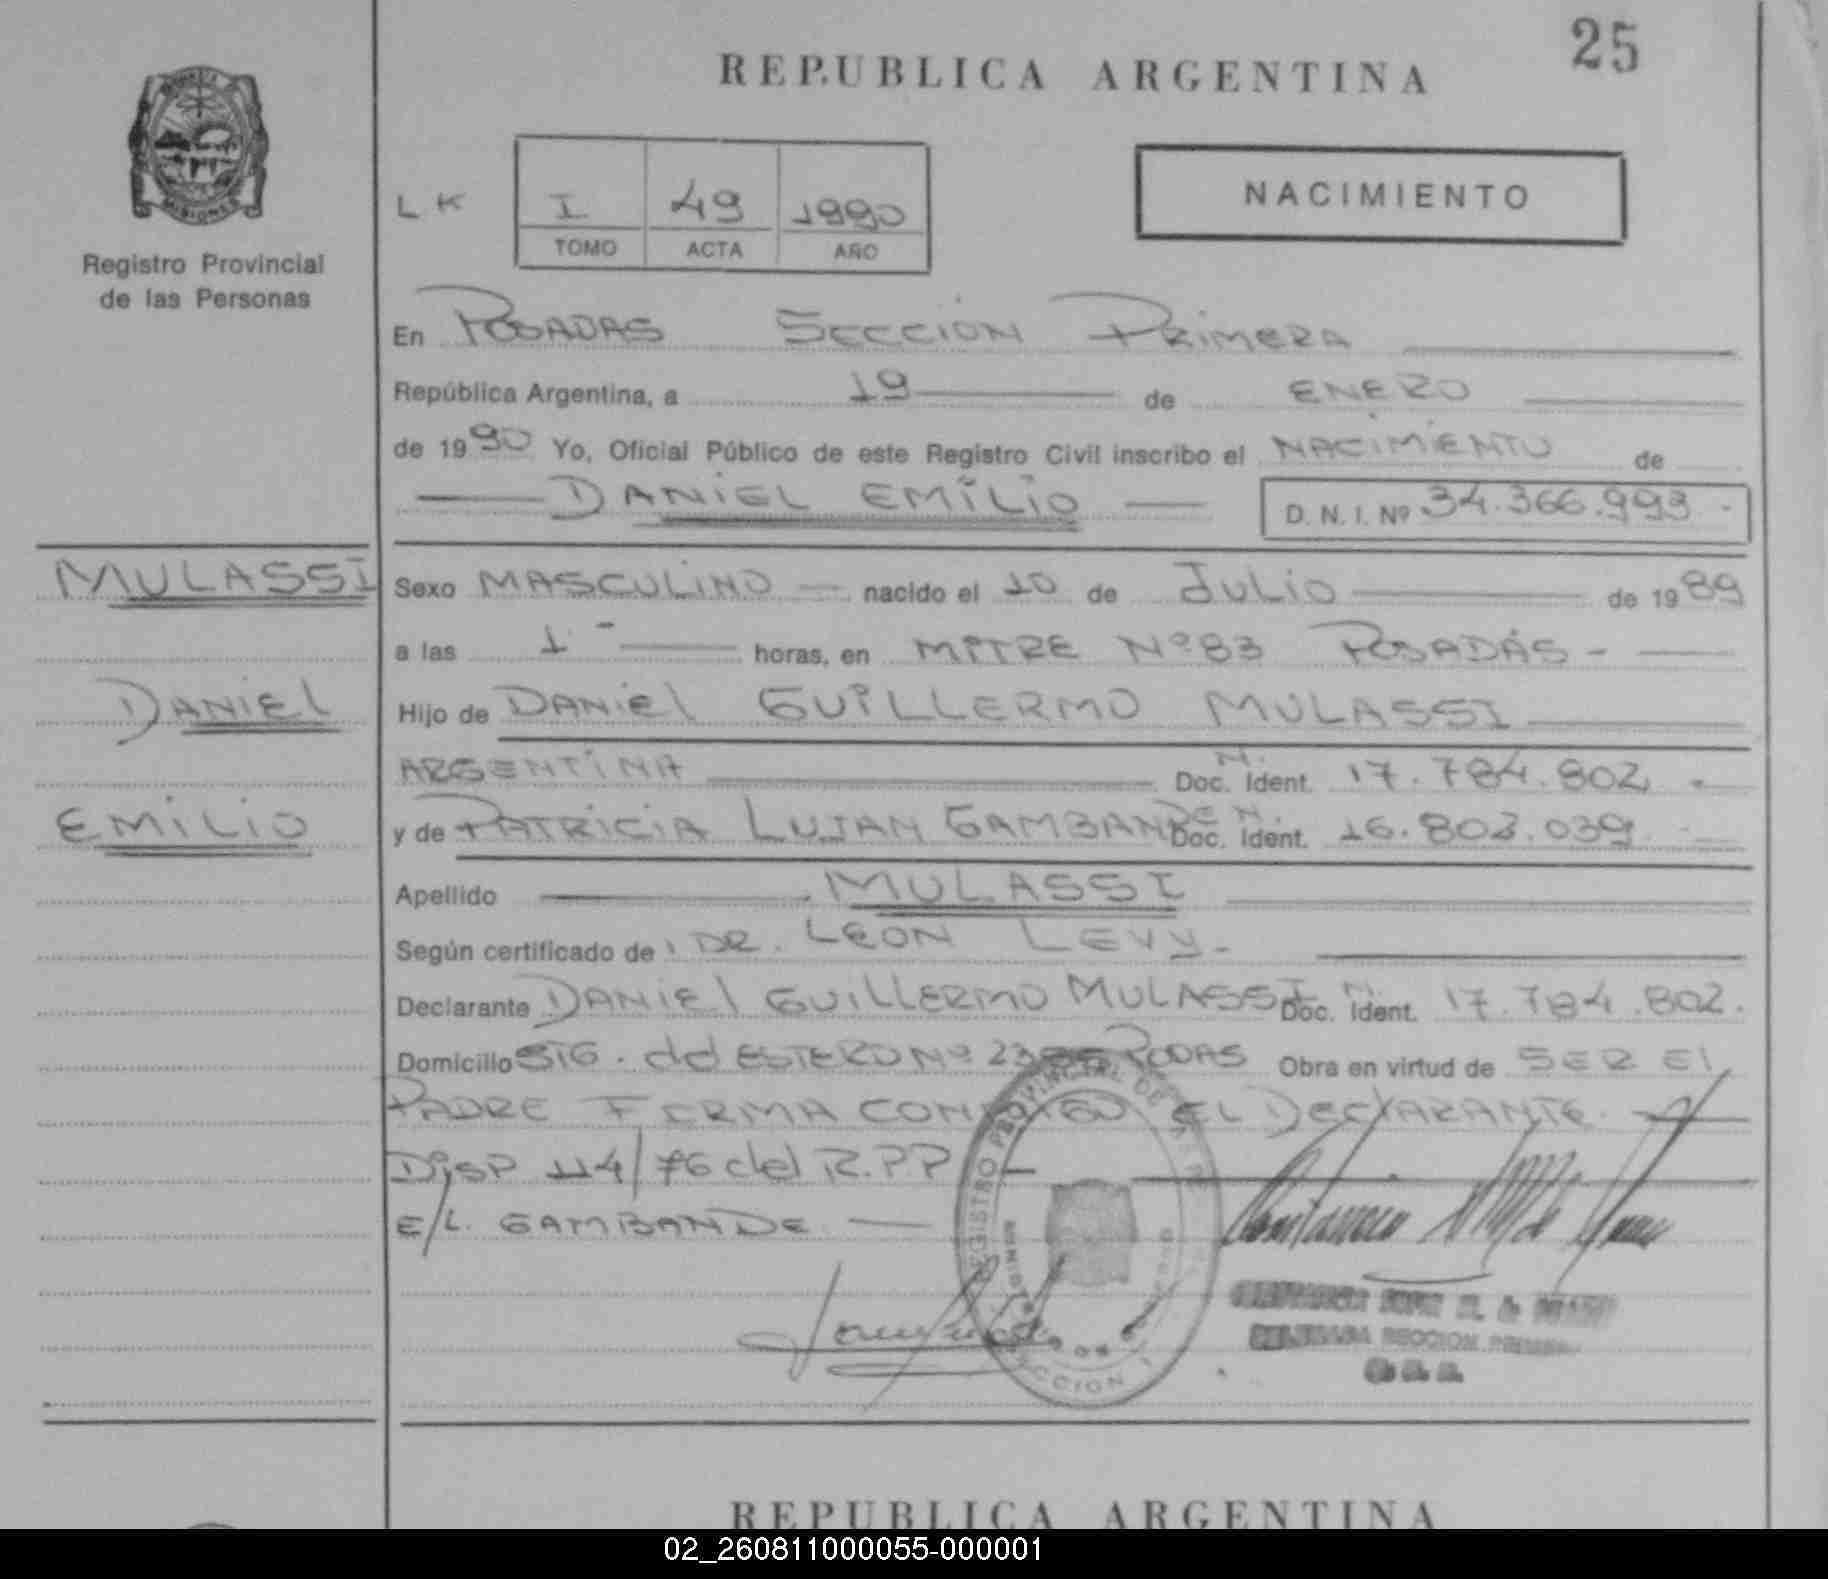 25
REPUBLICA ARGENTINA
MISIONES
Registro Provincial
de las Personas
LK
I 49 1990
TOMO ACTA AÑO
NACIMIENTO
En POSADAS SECCION PRIMERA
República Argentina, a 19 de ENERO
de 1990 Yo, Oficial Público de este Registro Civil inscribo el NACIMIENTO de
DANIEL EMILIO D.N.I. Nº 34.366.993.-
MULASSI
Sexo MASCULINO nacido el 10 de JULIO de 1989
a las 1 horas, en MITRE Nº 83 POSADAS-
DANIEL
Hijo de DANIEL GUILLERMO MULASSI
ARGENTINA N. Doc. Ident. 17.784.802.-
EMILIO
y de PATRICIA LUJAN GAMBANDE N. Doc. Ident. 16.803.039
Apellido MULASSI
Según certificado de DR. LEON LEVY-
Declarante DANIEL GUILLERMO MULASSI N. Doc. Ident. 17.784.802.
Domicilio STG. del ESTERO Nº PODAS Obra en virtud de SER EL
PADRE FIRMA CONMIGO EL DECLARANTE.
DISP 114/76 del R.PP
E/L. GAMBANDE
REGISTRO PROVINCIAL DE
SECCION
SECCION
REPUBLICA ARGENTINA
02_260811000055-000001